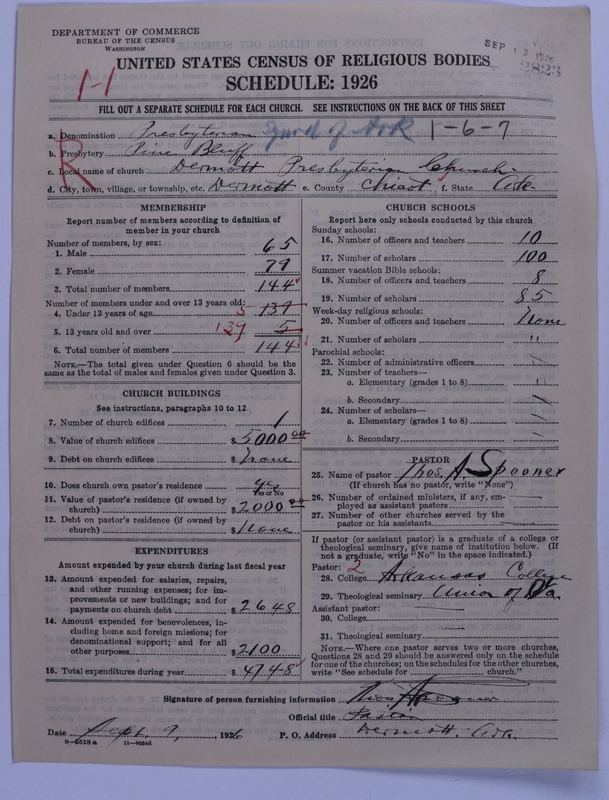 DEPARTMENT OF COMMERCE
BUREAU OF THE CENSUS
WASHINGTON
SEP 13 1926
2823
UNITED STATES CENSUS OF RELIGIOUS BODIES
SCHEDULE: 1926
1-1
FILL OUT A SEPARATE SCHEDULE FOR EACH CHURCH. SEE INSTRUCTIONS ON THE BACK OF THIS SHEET
a. Denomination Presbyterian Synod of Ark 1-6-7
R
b. Presbytery Pine Bluff
c. Local name of church Dermott Presbyterian Church
d. City, town, village, or township, etc. Dermott e. County Chicot f. State Ark.
MEMBERSHIP
Report number of members according to definition of member in your church
Number of members, by sex:
1. Male 65
2. Female 79
3. Total number of members 144
Number of members under and over 13 years old:
4. Under 13 years of age 5 139
5. 13 years old and over 139 5
6. Total number of members 144
NOTE.—The total given under Question 6 should be the
same as the total of males and females given under Question 3.
CHURCH BUILDINGS
See instructions, paragraphs 10 to 12
7. Number of church edifices 1
8. Value of church edifices $5000 00
9. Debt on church edifices $None
10. Does church own pastor's residence yes
Yes or No
11. Value of pastor's residence (if owned by
church) $2000 00
12. Debt on pastor's residence (if owned by
church) $None
EXPENDITURES
Amount expended by your church during last fiscal year
13. Amount expended for salaries, repairs,
and other running expenses; for im-
provements or new buildings; and for
payments on church debt $2648
14. Amount expended for benevolences, in-
cluding home and foreign missions; for
denominational support; and for all
other purposes $2100
15. Total expenditures during year $4748
CHURCH SCHOOLS
Report here only schools conducted by this church
Sunday schools:
16. Number of officers and teachers 10
17. Number of scholars 100
Summer vacation Bible schools:
18. Number of officers and teachers 8
19. Number of scholars 85
Week-day religious schools:
20. Number of officers and teachers None
21. Number of scholars "
Parochial schools:
22. Number of administrative officers
23. Number of teachers—
a. Elementary (grades 1 to 8) "
b. Secondary
24. Number of scholars—
a. Elementary (grades 1 to 8)
b. Secondary
PASTOR
25. Name of pastor Thos. A. Spooner
(If church has no pastor, write "None")
26. Number of ordained ministers, if any, em-
ployed as assistant pastors
27. Number of other churches served by the
pastor or his assistants
If pastor (or assistant pastor) is a graduate of a college or
theological seminary, give name of institution below. (If
not a graduate, write "No" in the space indicated.)
Pastor: 2
28. College Arkansas College
29. Theological seminary Union of Va.
Assistant pastor:
30. College
31. Theological seminary
NOTE.—Where one pastor serves two or more churches,
Questions 28 and 29 should be answered only on the schedule
for one of the churches; on the schedules for the other churches,
write "See schedule for church."
Signature of person furnishing information Thos A Spooner
Official title Pastor
Date Sept. 9, 1926 P. O. Address Dermott, Ark.
8-2518 a 11-9054d